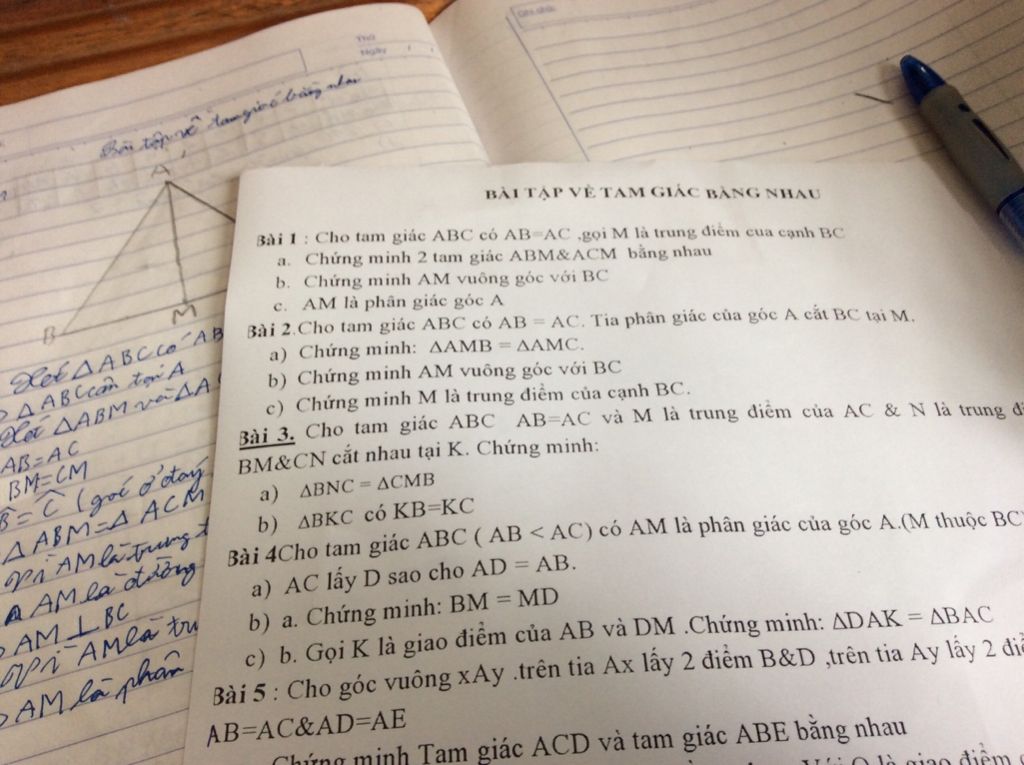 Thứ
Ngày / /
Ghi chú:
Bài tập về tam giác bằng nhau
A
B
M
Xét ΔABC có AB
ΔABC cân tại A
Xét ΔABM và ΔA
AB=AC
BM=CM
B̂=Ĉ (góc ở đáy
ΔABM=ΔACM
Vì AM là trung t
AM là đường
AM⊥BC
Vì AM là tru
AM là phân
BÀI TẬP VỀ TAM GIÁC BẰNG NHAU
Bài 1 : Cho tam giác ABC có AB=AC ,gọi M là trung điểm cua cạnh BC
a. Chứng minh 2 tam giác ABM&ACM bằng nhau
b. Chứng minh AM vuông góc với BC
c. AM là phân giác góc A
Bài 2.Cho tam giác ABC có AB = AC. Tia phân giác của góc A cắt BC tại M.
a) Chứng minh: ΔAMB = ΔAMC.
b) Chứng minh AM vuông góc với BC
c) Chứng minh M là trung điểm của cạnh BC.
Bài 3. Cho tam giác ABC AB=AC và M là trung điểm của AC & N là trung đi
BM&CN cắt nhau tại K. Chứng minh:
a) ΔBNC = ΔCMB
b) ΔBKC có KB=KC
Bài 4Cho tam giác ABC ( AB < AC) có AM là phân giác của góc A.(M thuộc BC)
a) AC lấy D sao cho AD = AB.
b) a. Chứng minh: BM = MD
c) b. Gọi K là giao điểm của AB và DM .Chứng minh: ΔDAK = ΔBAC
Bài 5 : Cho góc vuông xAy .trên tia Ax lấy 2 điểm B&D ,trên tia Ay lấy 2 điể
AB=AC&AD=AE
Chứng minh Tam giác ACD và tam giác ABE bằng nhau
là giao điểm